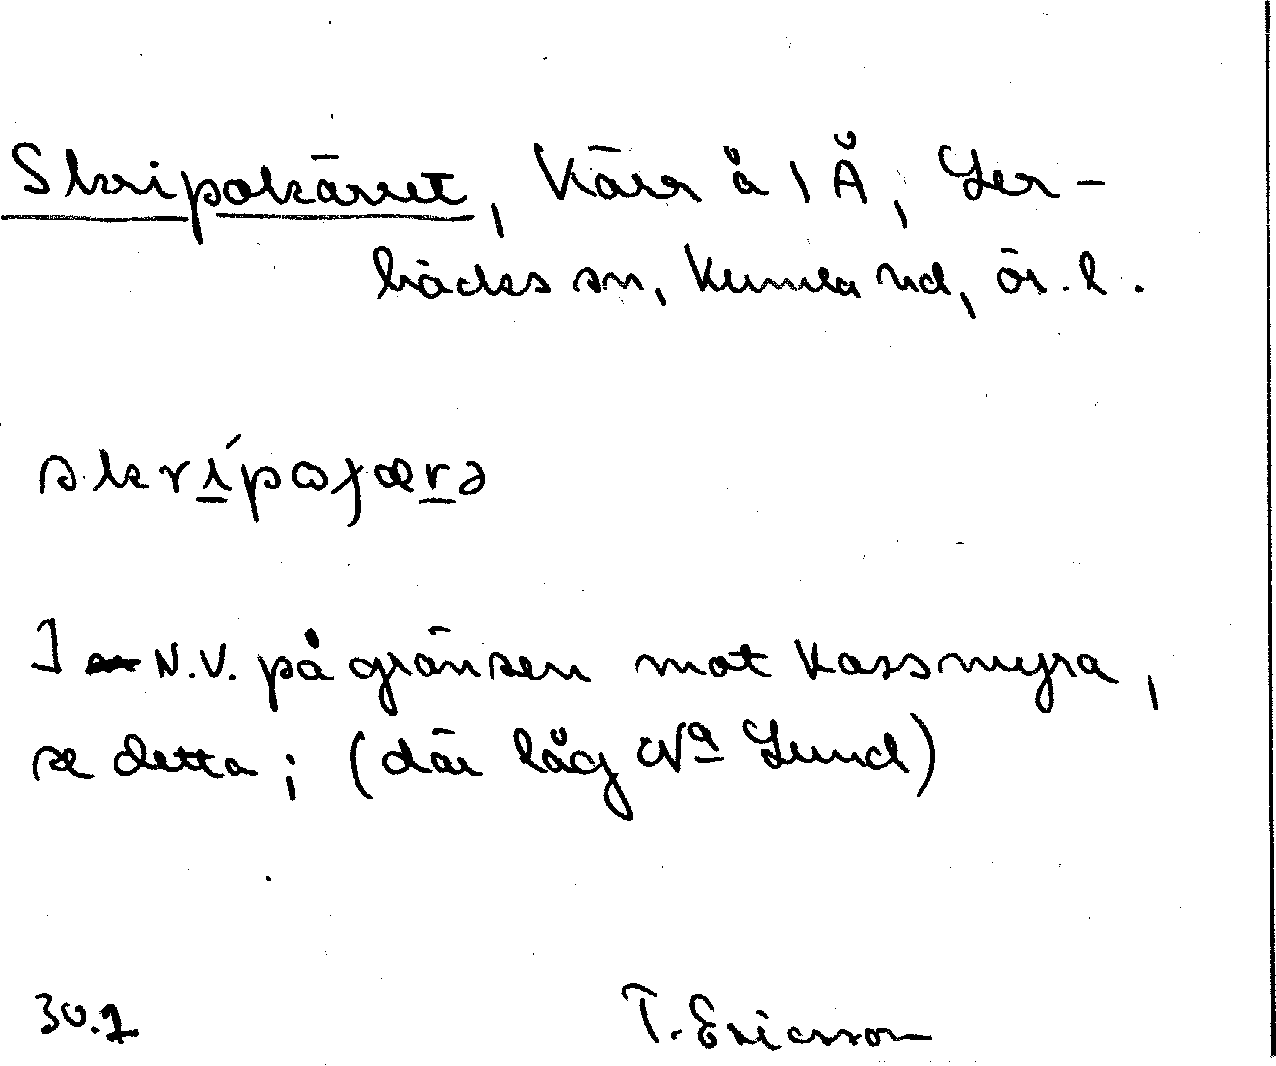 Skripokärret, Kärr å 1 Å, Ler-
bäcks sn, Kumla hd, Ör. l.
skripoȷærə
I N.V. på gränsen mot Kassmyra,
se detta; (där låg Na Lund)
30.7 T. Ericsson